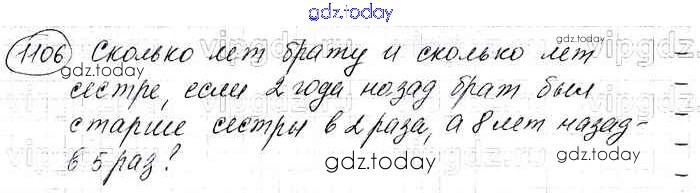 gdz.today
1106 Сколько лет брату и сколько лет
gdz.today
сестре, если 2 года назад брат был
старше сестры в 2 раза, а 8 лет назад -
gdz.today
в 5 раз?
gdz.today